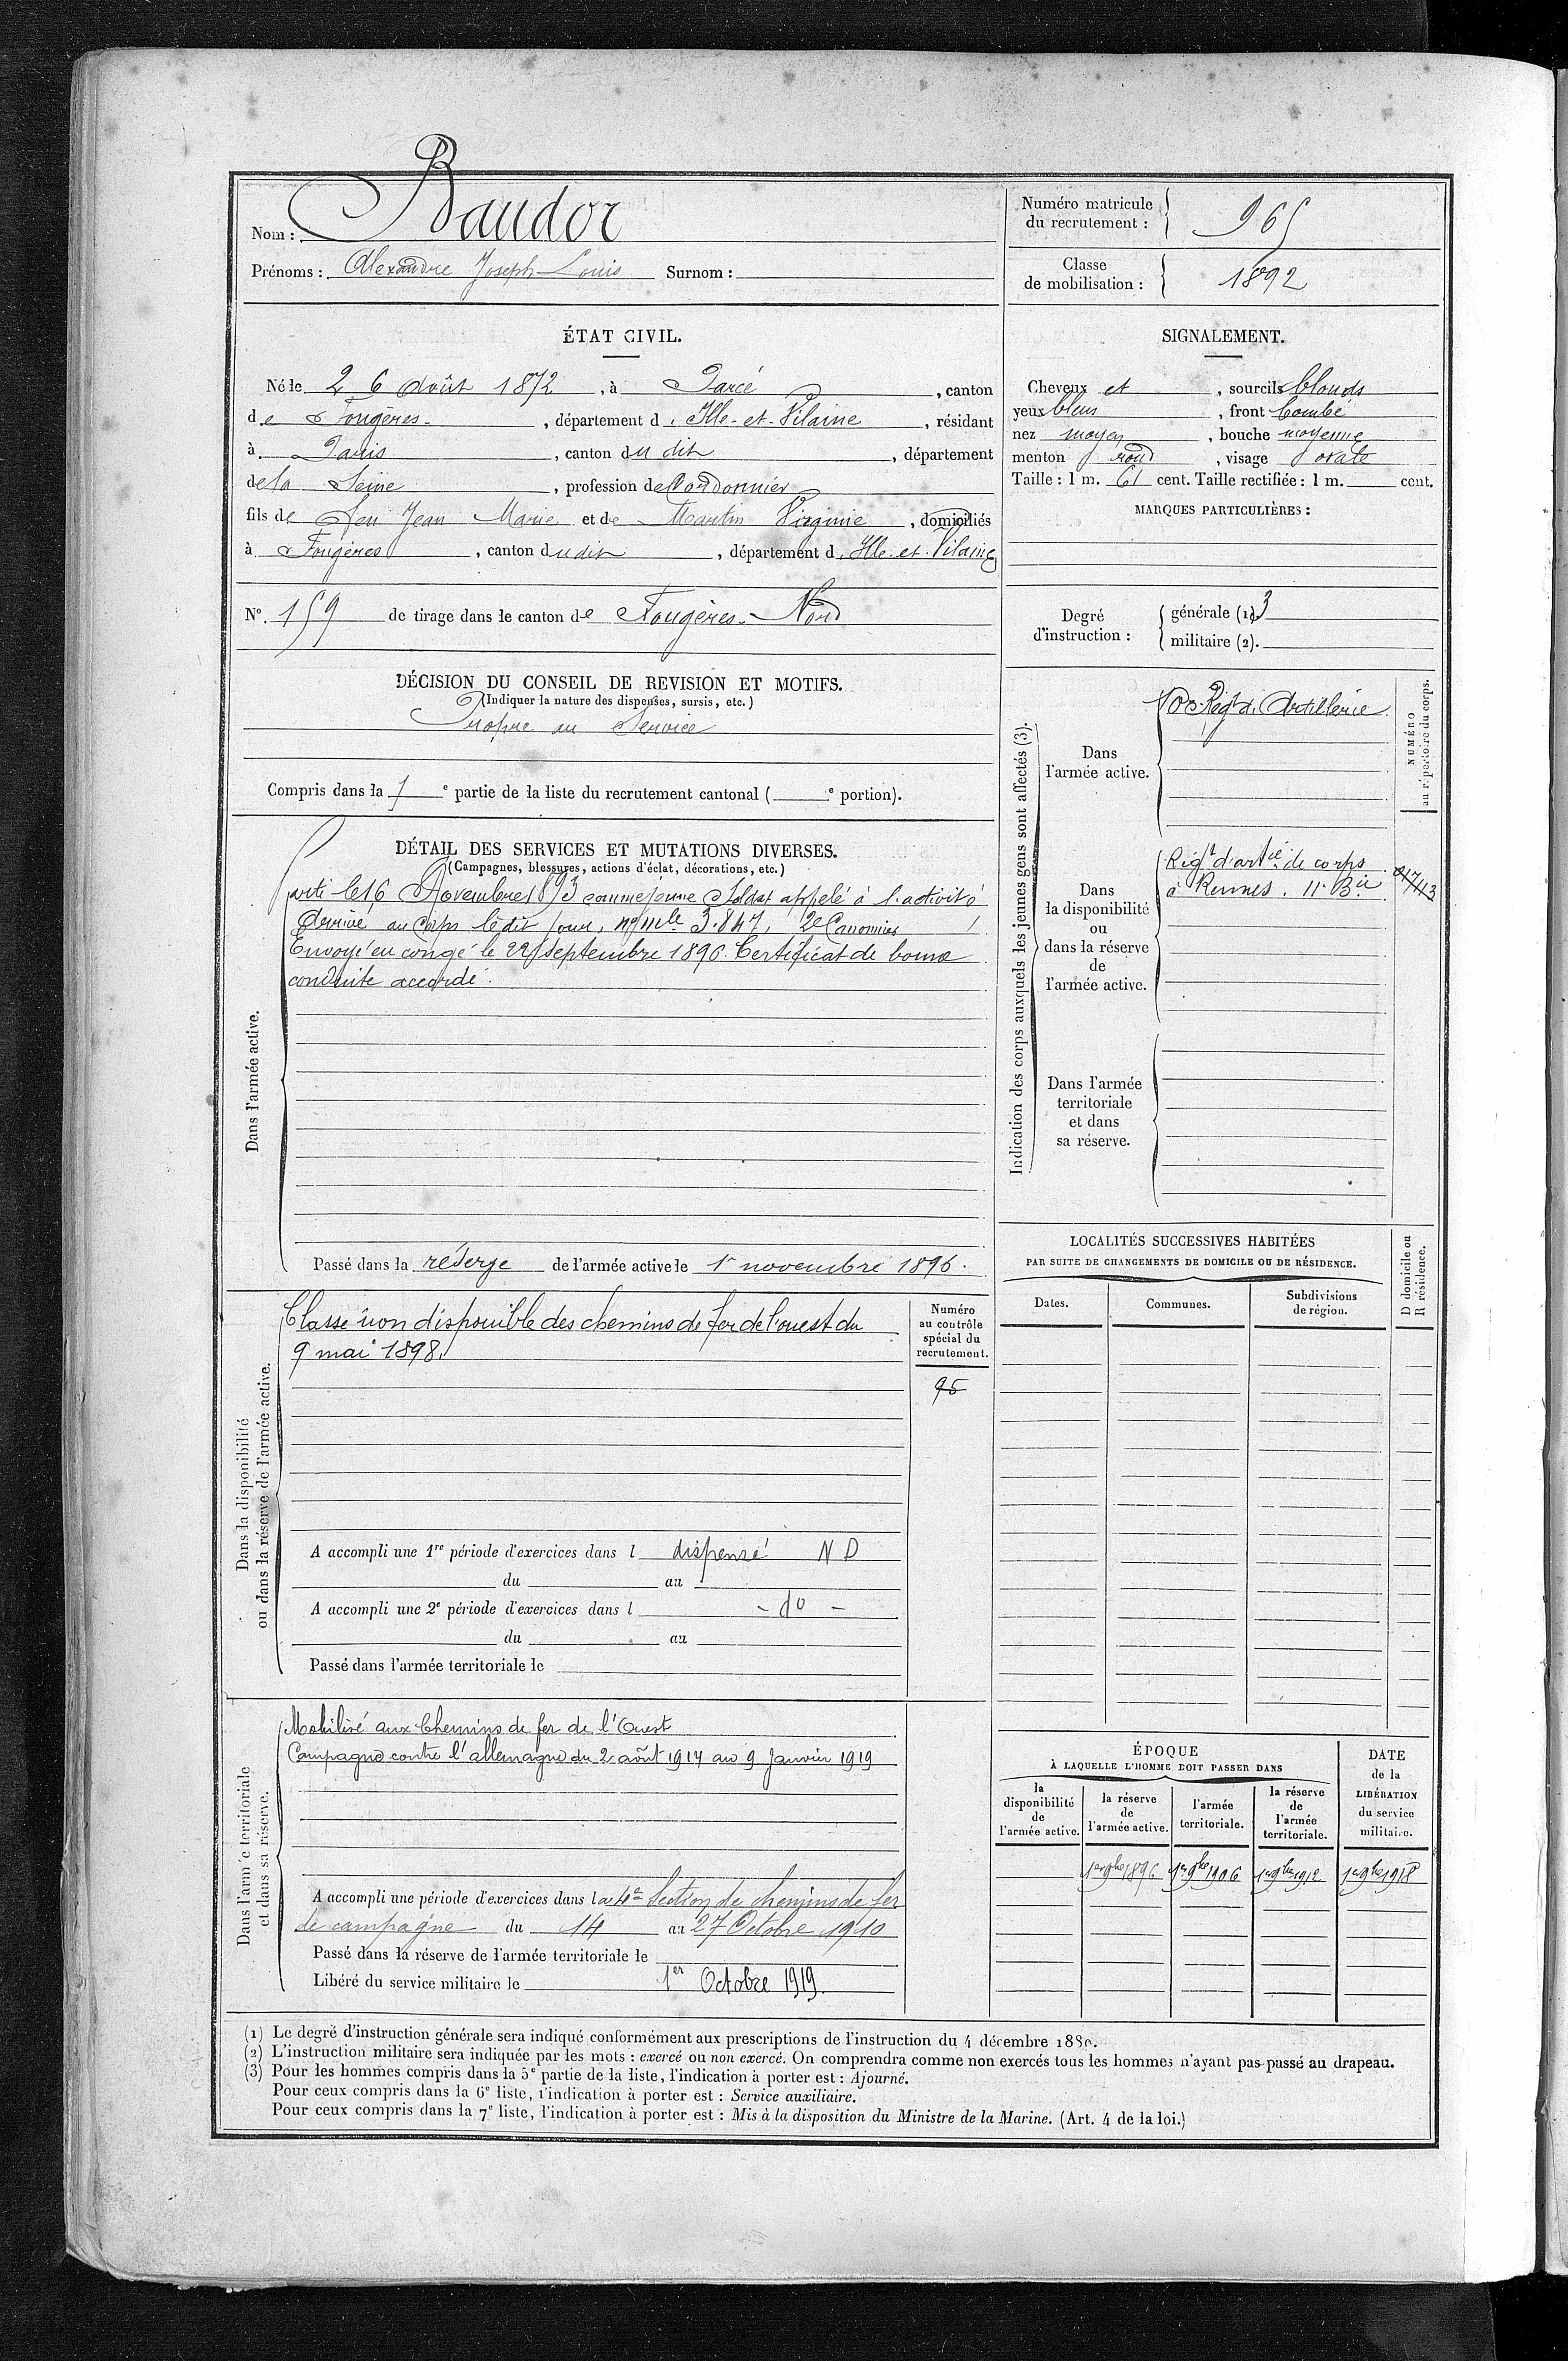 Nom : Baudor
Prénoms : Alexandre Joseph-Louis Surnom :
Numéro matricule du recrutement : 965
Classe de mobilisation : 1892
ÉTAT CIVIL.
Né le 26 Août 1872, à Parcé, canton
de Fougères, département d. Ille-et-Vilaine, résidant
à Paris, canton du dit, département
de la Seine, profession de Cordonnier
fils de feu Jean Marie et de Martin Virginie, domiciliés
à Fougères, canton dudit, département d. Ille-et-Vilaine
N°. 159 de tirage dans le canton de Fougères-Nord
SIGNALEMENT.
Cheveux et, sourcils blonds
yeux bleus, front bombé
nez moyen, bouche moyenne
menton rond, visage ovale
Taille : 1 m. 61 cent. Taille rectifiée : 1 m. cent.
MARQUES PARTICULIÈRES :
Degré d'instruction :
générale (1). 3
militaire (2).
DÉCISION DU CONSEIL DE REVISION ET MOTIFS.
(Indiquer la nature des dispenses, sursis, etc.)
Propre au Service
Compris dans la 1e partie de la liste du recrutement cantonal ( e portion).
DÉTAIL DES SERVICES ET MUTATIONS DIVERSES.
(Campagnes, blessures, actions d'éclat, décorations, etc.)
Dans l'armée active.
Parti le 16 Novembre 1893 comme jeune Soldat appelé à l'activité
Arrivé au Corps le dit jour, no mle 3.847, 2e Canonnier
Envoyé en congé le 22 septembre 1896. Certificat de bonne
conduite accordé.
Passé dans la réserve de l'armée active le 1r novembre 1896.
Indication des corps auxquels les jeunes gens sont affectés (3).
NUMÉRO au répertoire du corps.
Dans l'armée active.
10e Régt d. Artillerie
Dans la disponibilité ou dans la réserve de l'armée active.
Régt d'artie de corps
à Rennes. 11e Bie
Dans l'armée territoriale et dans sa réserve.
Dans la disponibilité
ou dans la réserve de l'armée active.
Classe non disponible des chemins de fer de l'ouest du
9 mai 1898.
Numéro au contrôle spécial du recrutement.
95
A accompli une 1re période d'exercices dans l dispensé N D
du au
A accompli une 2e période d'exercices dans l - do -
du au
Passé dans l'armée territoriale le
LOCALITÉS SUCCESSIVES HABITÉES
PAR SUITE DE CHANGEMENTS DE DOMICILE OU DE RÉSIDENCE.
D domicile ou R résidence.
Dates. Communes. Subdivisions de région.
Dans l'armée territoriale
et dans sa réserve.
Mobilisé aux Chemins de fer de l'Ouest
Campagne contre l'allemagne du 2 août 1914 au 9 Janvier 1919
A accompli une période d'exercices dans la 4e Section de chemins de fer
de campagne du 14 au 27 Octobre 1910
Passé dans la réserve de l'armée territoriale le
Libéré du service militaire le 1er Octobre 1919.
ÉPOQUE
À LAQUELLE L'HOMME DOIT PASSER DANS
la disponibilité de l'armée active.
la réserve de l'armée active.
l'armée territoriale.
la réserve de l'armée territoriale.
DATE de la LIBÉRATION du service militaire.
1er 9bre 1896 1er 9bre 1906 1er 9bre 1912 1er 9bre 1918
(1) Le degré d'instruction générale sera indiqué conformément aux prescriptions de l'instruction du 4 décembre 1889.
(2) L'instruction militaire sera indiquée par les mots : exercé ou non exercé. On comprendra comme non exercés tous les hommes n'ayant pas passé au drapeau.
(3) Pour les hommes compris dans la 5e partie de la liste, l'indication à porter est : Ajourné.
Pour ceux compris dans la 6e liste, l'indication à porter est : Service auxiliaire.
Pour ceux compris dans la 7e liste, l'indication à porter est : Mis à la disposition du Ministre de la Marine. (Art. 4 de la loi.)